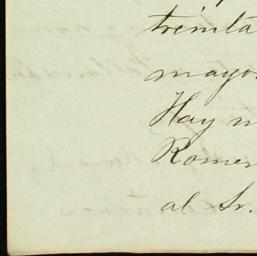 trinita
mayo
Hay n
Romer
al Sr.